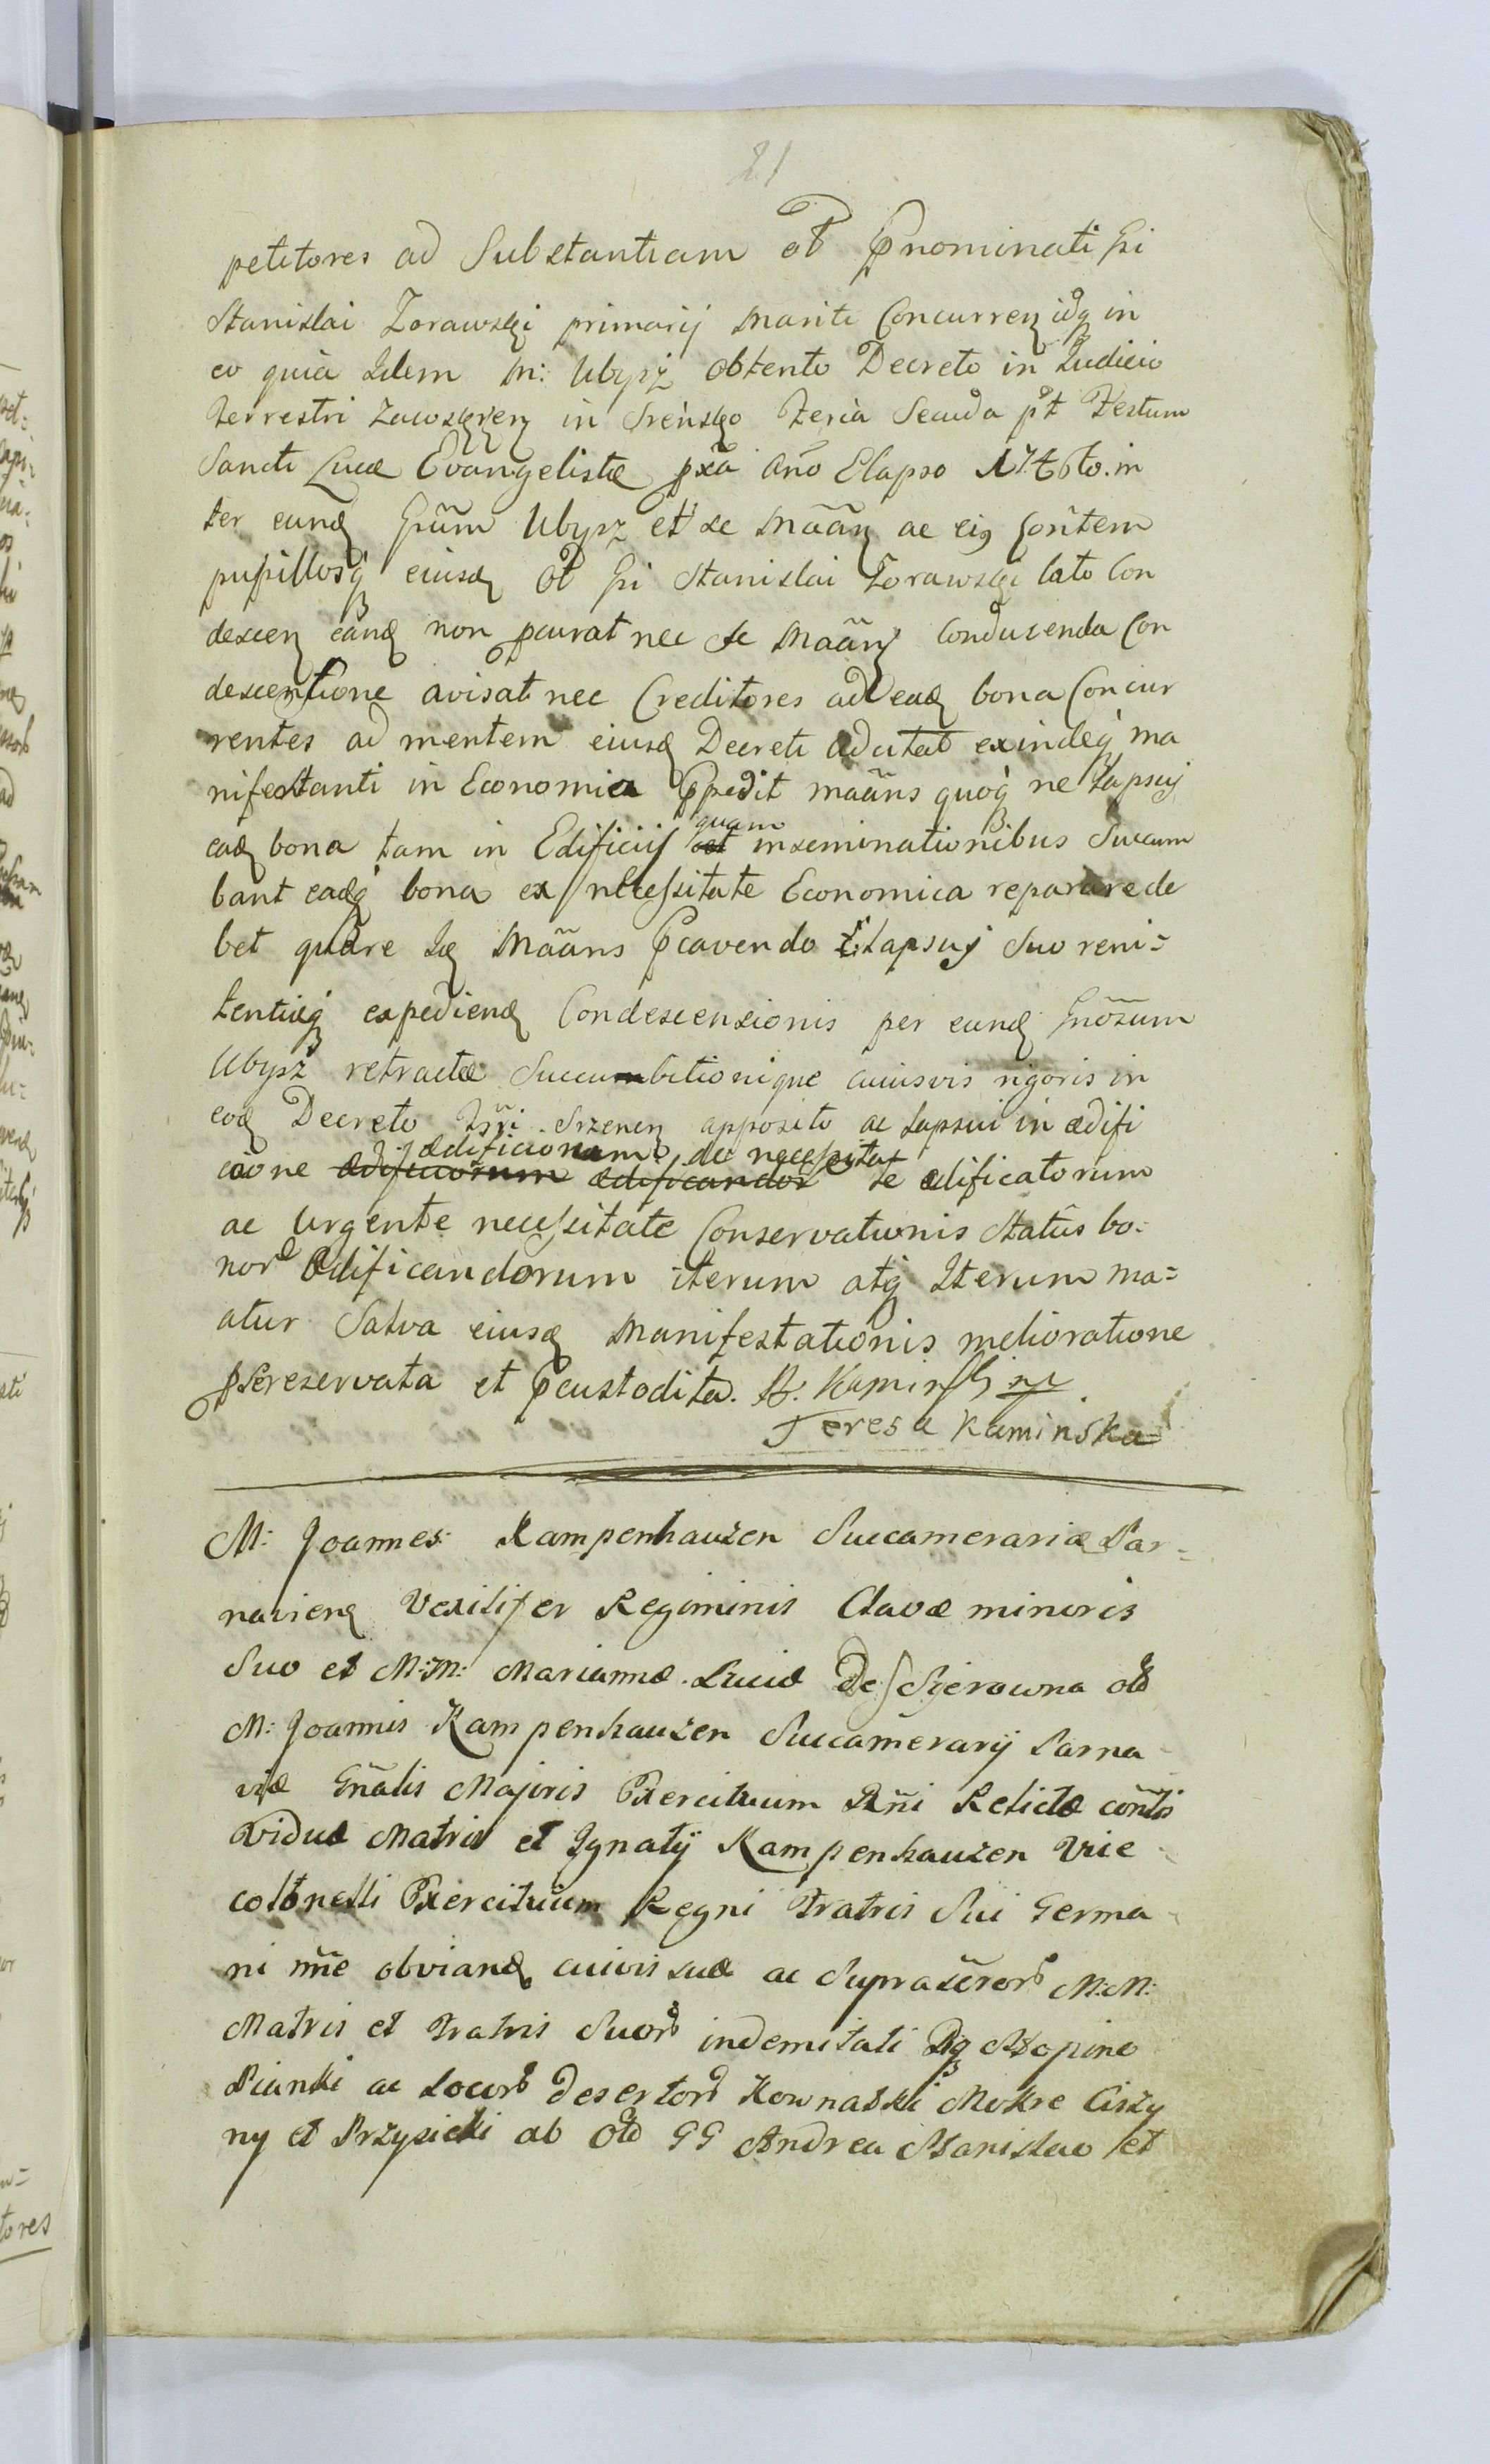 21
petitores ad Substantiam ol pnominati Gi
Stanislai Zorawski primarij Mariti Concurren idq in
eo quia Idem M: Ubysz obtento Decreto in Judicio
Terrestri Zawskrzen in Srensko Feria Secuda pt Festum
Sancti Lucæ Evangelistæ pxa Año Elapso 1746to. in
ter eund Gñum Ubysz et se Maãn ac eig Coñtem
pupillosq eiusd ol Gi Stanislai Zorawski lato Con
descen eand non pcurat nec se Maãn Conducenda Con
descentione avisat nec Creditores ad ead bona Concur
rentes ad mentem eiusd Decreti adcitat exindeq ma
nifestanti in Economia Ppedit maãns quoq ne Lapsuj
ead bona tam in Edificiis quam inseminationibus Sucum
bant eadq bona ex necessitate Economica reparare de
bet quare Id Maãns Pcavendo Lapsuj Suo reni=
tentiæq expediend Condescensionis per eund Gnõsum
Ubysz retractæ Succumbitionique cuiusvis rigoris in
eod Decreto Trri Srzenen apposito ac Lapsui in ædifi
cione ædificiorum ædificandor te ædificatorum
ædificionam de necessita
ac Urgente necessitate Conservationis Statûs bo=
nor Ædificandorum iterum atq Iterum ma=
atur Salva eiusd Manifestationis melioratione
psereservata et pcustodita. B. Kaminski mp
Teresa Kaminska
M: Joannes Kampenhauzen Succamerariæ Par=
navien Vexilifer Regiminis Clavæ minoris
Suo et M:M: Mariannæ Luciæ De Scierowna ol
M: Joannis Kampenhauzen Succamerarij Parna
viæ Gñalis Majoris Exercituum Rñi Relictæ coñtis
Viduæ Matris et Ignatij Kampenhauzen Vice
colonelli Exercituum Regni Fratris Sui Germa
ni ñne obviand cuivis suæ ac Suprascror M:M:
Matris et Fratris Suor indemitati Dq Stopino
Pianki ac Locor desertor Kownatki Mokre Ciszy
ny et Przysieki ab ol GG Andrea Stanislao et